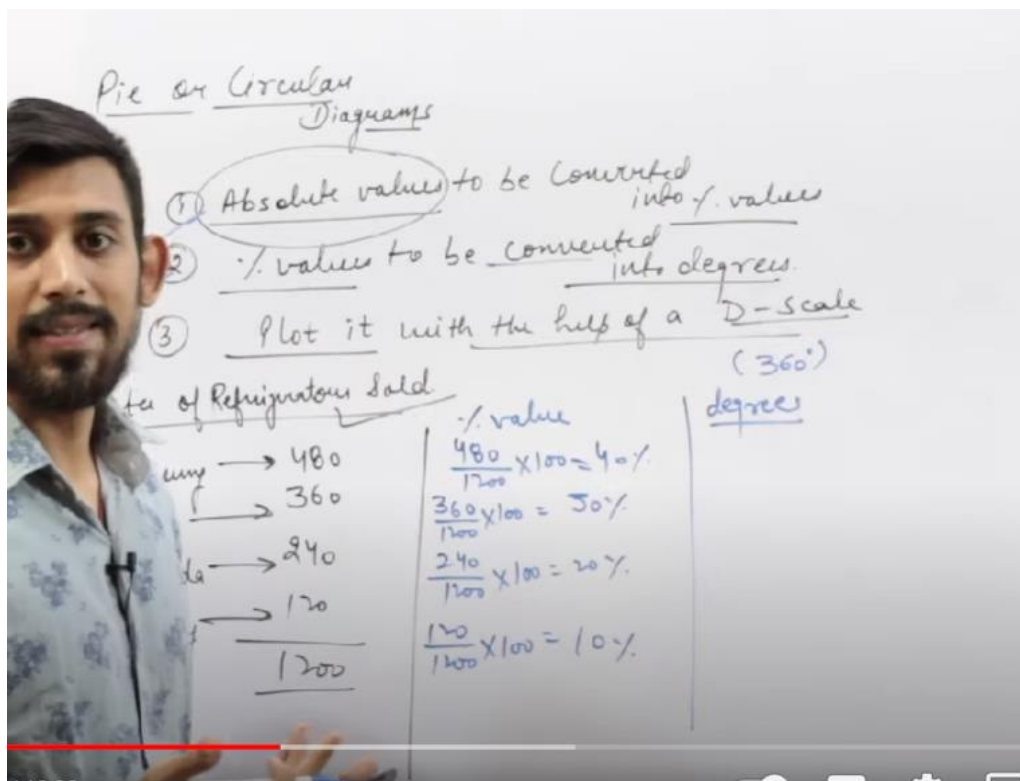 Pie or Circular
Diagrams
① Absolute values to be Converted
into % values
② % values to be converted
into degrees.
③ Plot it with the help of a D-Scale
(360°)
of Refrigerators Sold
% value
degrees
→ 480
480/1200 × 100 = 40%
→ 360
360/1200 × 100 = 30%
→ 240
240/1200 × 100 = 20%
→ 120
120/1200 × 100 = 10%
1200